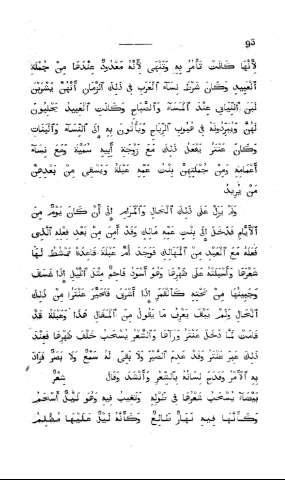 95
لأنها كانت تأمر به وتنهى لأنه معدود عندها من جملة
العبيد وكان شرط نساء العرب في ذلك الزمان أنهن يشربن
لبن النياق عند المساء والصباح وكانت العبيد يحلبون
لهن ويبردونه في هبوب الرياح ويأتون به إلى النساء والبنات
وكان عنتر يفعل ذلك مع زوجة أبيه سمية ومع نساء
أعمامه ومن جملتهن بنت عمه عبلة ويسقي من بعدهن
من يريد
ولم يزل على ذلك الحال والمرام إلى أن كان يوم من
الأيام فدخل إلى بنت عمه مالك وقد أتى من بعد فعله الذي
فعله مع العبيد من المهالك فوجد أم عبلة قاعدة تمشط لها
شعرها وأسبلته على ظهرها وهو أسود فاحم مثل الليل إذا غسف
وجبينها من تحته كالقمر إذا أشرف فتحير عنتر من ذلك
الحال ولم يبق يعرف ما يقول من المقال هذا وعبلة قد
قامت لما دخل عنتر وراءها والشعر يسحب خلف ظهرها فعند
ذلك حير عنتر وقد عدم الصبر ولا بقى له سمع ولا بصر فزاد
به الأمر وقدح لسانه بالشعر وأنشد وقال شعر
بيضاء يسحب شعرها في طوله وتغيب فيه وهو ليل أسحم
وكأنها فيه نهار ساطع وكأنه ليل عليها مظلم